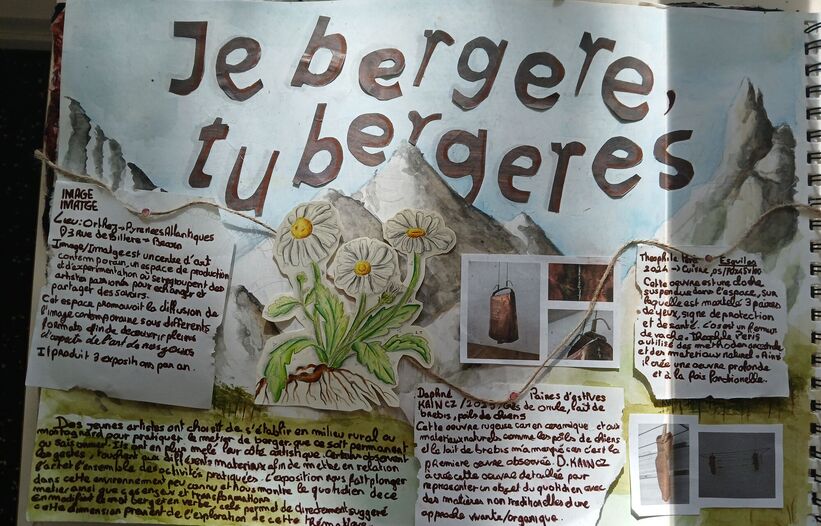 Je bergere,
tu bergeres
IMAGE
IMATGE
Lieu: Orthez → Pyrénées Atlantiques
3 Rue de Billère → Béarn
Image/Imatge est un centre d'art
contemporain, un espace de production
et d'expérimentation où se regroupent des
artistes passionnés pour échanger et
partager des savoirs.
Cet espace promouvoit la diffusion de
l'image contemporaine sous différents
formats afin de découvrir pleins
d'aspects de l'art de nos jours
Il produit 3 expositions par an.
Théophile Peris Esquilas
2024 → Cuivre,
Cette oeuvre est une cloche
suspendue dans l'espace, sur
laquelle est modelé 3 paires
de yeux, signe de protection
et de santé.
de vache. Théophile Peris
utilise des méthodes ancestrales
et des matériaux naturel. Ainsi
il crée une oeuvre profonde
et à la fois fonctionelle.
Daphné Raines d'estives
KAINCZ / lait de
brebis, poils de chiens
Cette oeuvre rugueuse car en céramique et aux
matériaux naturels comme les poils de chiens
et le lait de brebis m'a marqué car c'est la
première oeuvre observée. D. KAINCZ
a crée cette oeuvre détaillée pour
représenter un objet du quotidien avec
des matières non traditionelles d'une
approche vivante/organique.
Des jeunes artistes ont choisit de s'établir en milieu rural ou
montagnard pour pratiquer le métier de berger, que ce soit permanent
ou saisonnier. Ils ont en plus mêlé leur côté artistique. Certains observent
les gestes, touchent aux différents matériaux afin de mettre en relation
l'art et l'ensemble des activités pratiquées. L'exposition nous fait plonger
dans cette environnement peu connu et nous montre le quotidien de ce
métier ainsi que ces enjeux et transformations.
en modifiant le mot berger en verbe, cela permet de directement suggéré
cette dimension prenant de l'exploration de cette thématique.